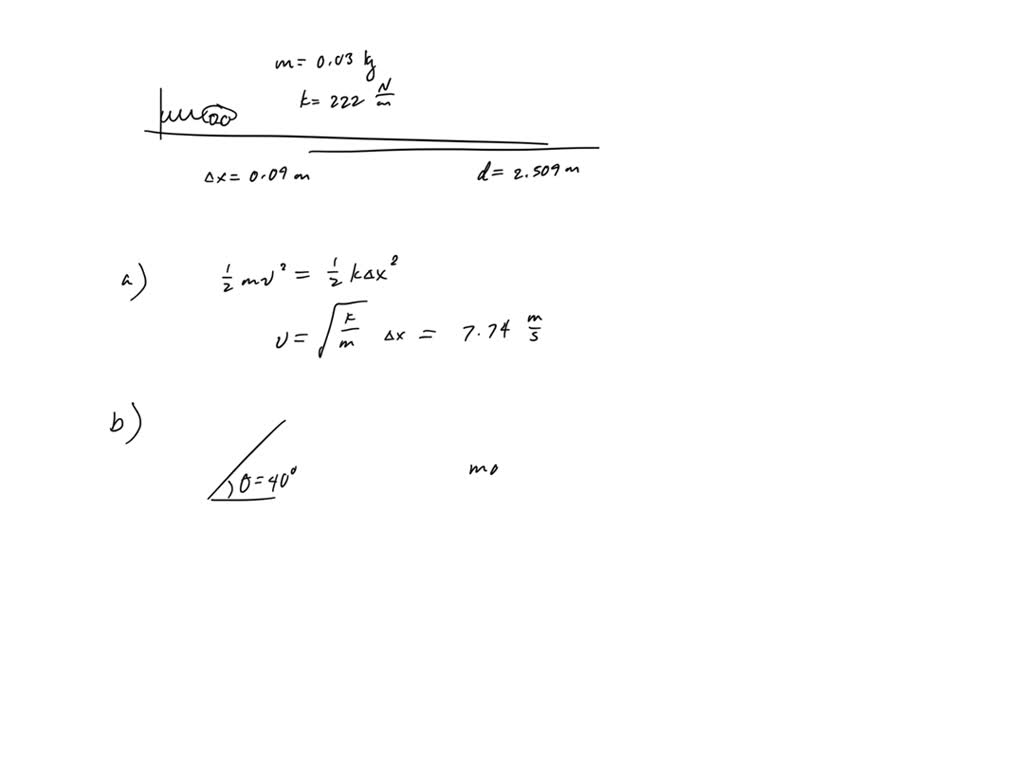 m = 0.03 kg
k = 222 N/m
Δx = 0.09 m d = 2.509 m
a) 1/2 mv² = 1/2 kΔx²
v = √(k/m) Δx = 7.74 m/s
b)
θ = 40° mo